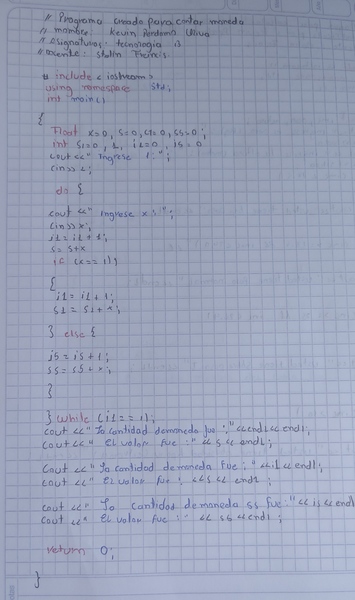 // Programa creado para contar moneda
// nombre: Kevin Perdomo Oliva
// Asignatura: tecnologia B
// Docente: Stalin Francis
# include <iostream>
using namespace Std;
int main()
{
Float x=0, S=0, S1=0, SS=0;
int S1=0, 1, i1=0, is=0
Cout <<" Ingrese 1:";
Cin>> 1;
do {
cout <<" Ingrese x:";
Cin>> x;
i1= i1 + 1;
S= S+x
if (x==1)
{
i1= i1 + 1;
S1= S1+ x;
} else {
is = is + 1;
ss= ss + x;
}
} while (i1== 1);
cout <<" la cantidad demoneda fue:" <<endl<<endl;
cout <<" El valor fue:" << s << endl;
Cout <<" la cantidad demoneda Fue:" <<i1<< endl;
cout <<" El valor fue:, <<s << endl
cout <<" la cantidad demoneda ss fue:" << is << endl
Cout <<" El valor fue:" << ss << endl;
return 0;
}